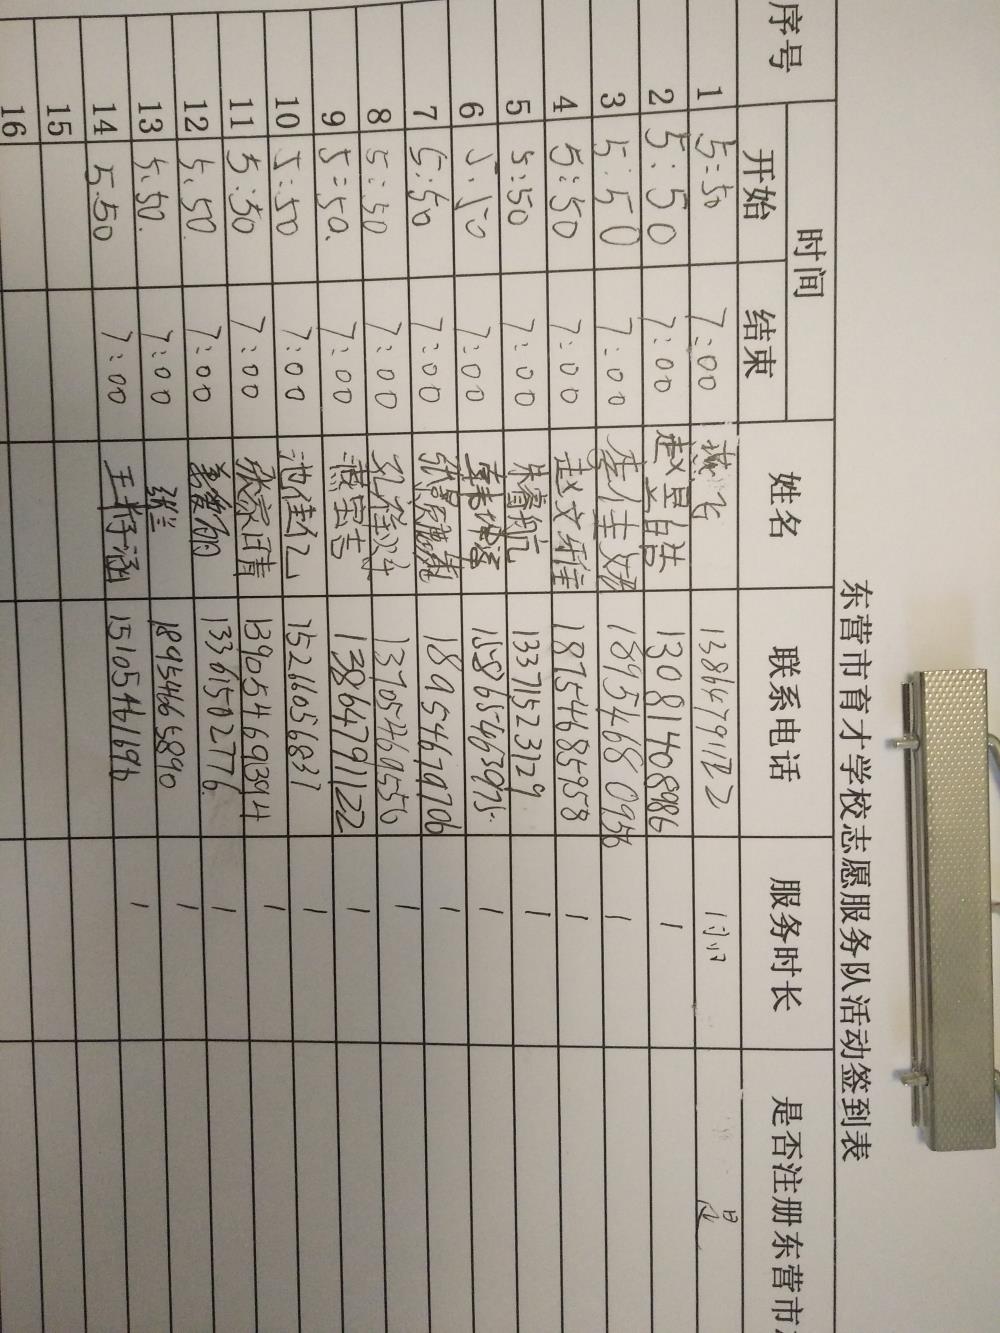 东营市育才学校志愿服务队活动签到表
序号 时间 姓名 联系电话 服务时长 是否注册东营市
开始 结束
1 5:50 7:00 飞 13864791122 1小时 是
2 5:50 7:00 赵昱皓 13081408986 1
3 5:50 7:00 李佳 18954680956 1
4 5:50 7:00 赵文 18754685958 1
5 5:50 7:00 朱睿航 13371523129 1
6 5:50 7:00 韩坤 15865463975 1
7 5:50 7:00 张 18954679706 1
8 5:50 7:00 孔 13705460556 1
9 5:50. 7:00 宝 13864791122 1
10 5:50 7:00 池佳亿 15266056831 1
11 5:50 7:00 家晴 13905469394 1
12 5.50. 7:00 13361502776. 1
13 5.50. 7:00 张兰 18954665890 1
14 5.50 7:00 王梓涵 15105461696 1
15
16